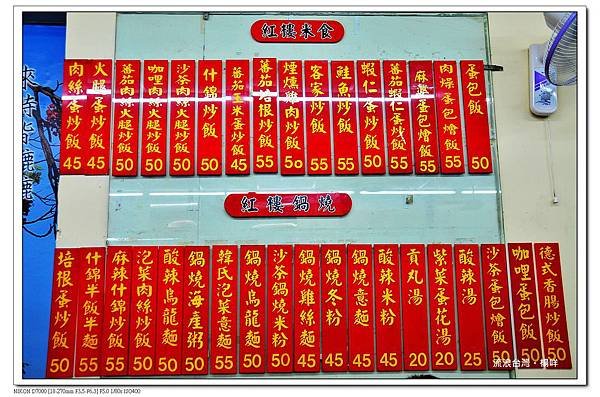 紅樓米食
蛋包飯 50
肉燥蛋包燴飯 50
麻婆蛋包燴飯 55
番茄蝦仁蛋炒飯 55
蝦仁蛋炒飯 50
鮭魚炒飯 55
客家炒飯 55
燻雞肉炒飯 50
番茄培根炒飯 55
番茄玉米蛋炒飯 45
什錦炒飯 50
沙茶肉絲火腿炒飯 50
咖哩肉絲火腿炒飯 50
番茄肉絲火腿炒飯 50
火腿蛋炒飯 45
肉絲蛋炒飯 45
紅樓鍋燒
德式香腸炒飯 50
咖哩蛋包飯 50
沙茶蛋包燴飯 50
酸辣湯 25
紫菜蛋花湯 20
貢丸湯 20
酸辣米粉 45
鍋燒意麵 45
鍋燒冬粉 45
鍋燒雞絲麵 45
沙茶鍋燒米粉 50
鍋燒烏龍麵 50
韓氏泡菜意麵 55
鍋燒海產粥 50
酸辣烏龍麵 50
泡菜肉絲炒飯 50
麻辣什錦炒飯 55
什錦半飯半麵 55
培根蛋炒飯 50
流浪台灣‧欄咩
NIKON D7000 [18-270mm F3.5-F6.3] F5.0 1/80s ISO400